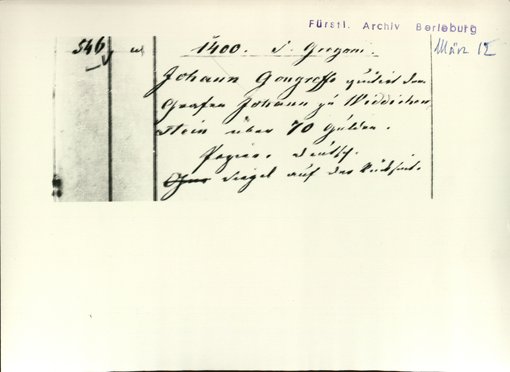 Fürstl. Archiv Berleburg
März 12
546 1400. d. Gregorii
Johann quitirt dem
Grafen Johann zu
stein über 70 Gulden.
Papier. Deutsch.
Siegel auf der Rückseite.